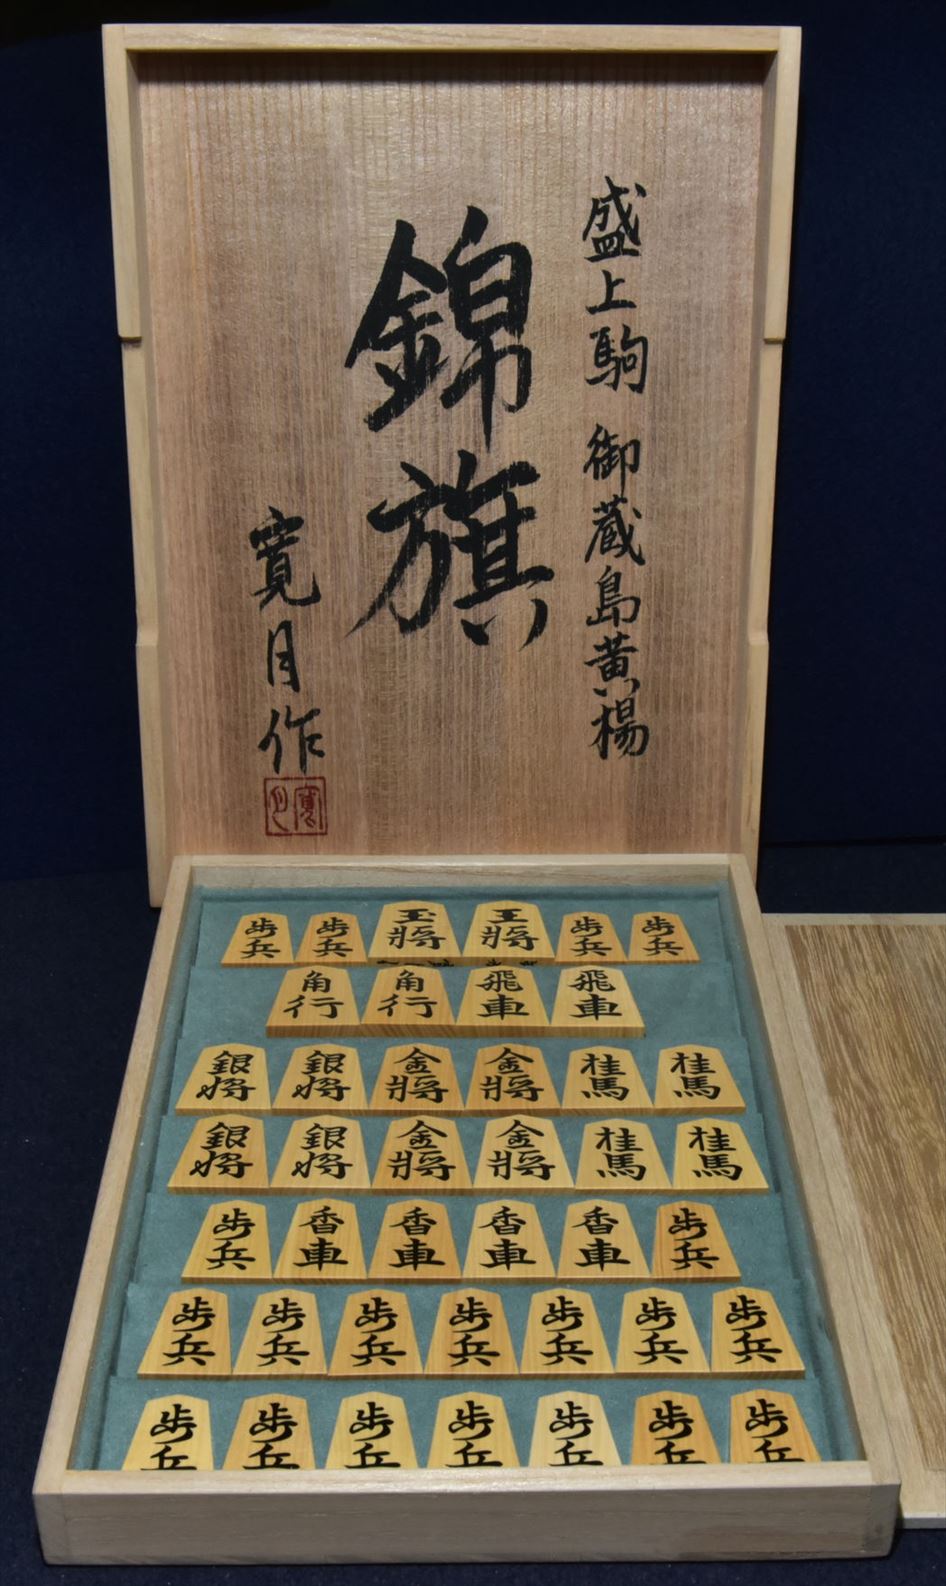 盛上駒 御蔵島黄楊
錦旗
寛月作
寛月
歩兵 歩兵 玉将 王将 歩兵 歩兵
角行 角行 飛車 飛車
銀将 銀将 金将 金将 桂馬 桂馬
銀将 銀将 金将 金将 桂馬 桂馬
歩兵 香車 香車 香車 香車 歩兵
歩兵 歩兵 歩兵 歩兵 歩兵 歩兵 歩兵
歩兵 歩兵 歩兵 歩兵 歩兵 歩兵 歩兵